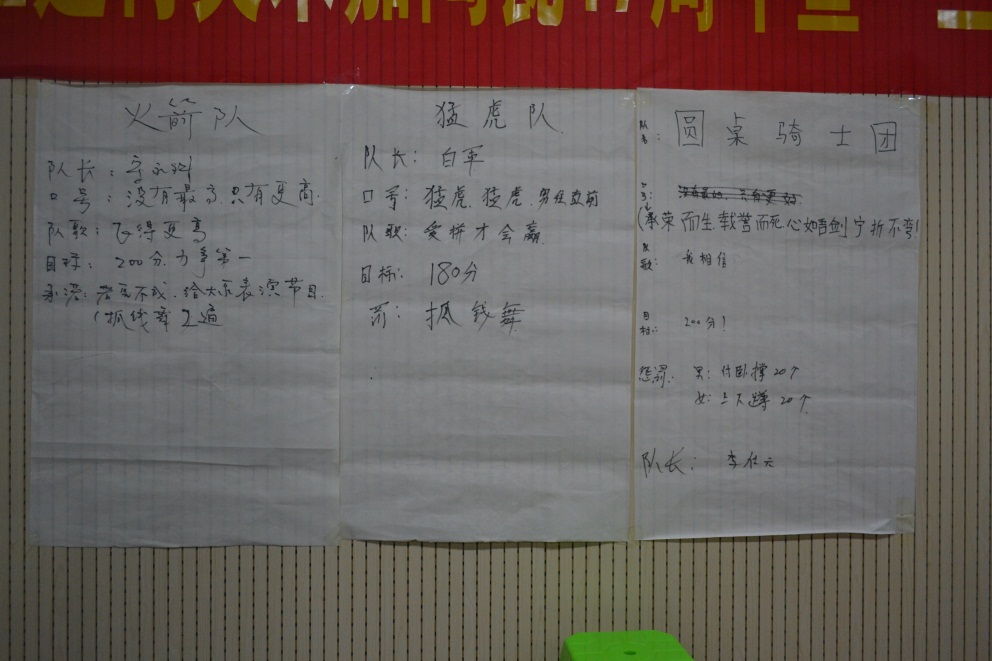 17周年
火箭队
队长:
口号:没有最高,只有更高
队歌:飞得更高
目标:200分,力争第一
承诺:若完不成,给大家表演节目
(抓钱舞2遍
猛虎队
队长:白军
口号:猛虎,猛虎,勇往直前
队歌:爱拼才会赢
目标:180分
罚:抓钱舞
队名:圆桌骑士团
口号:
(承荣而生载誉而死心如昔剑宁折不弯!
队歌:我相信
目标:200分!
惩罚:男:俯卧撑20个
女:上下蹲20个
队长:李仕云